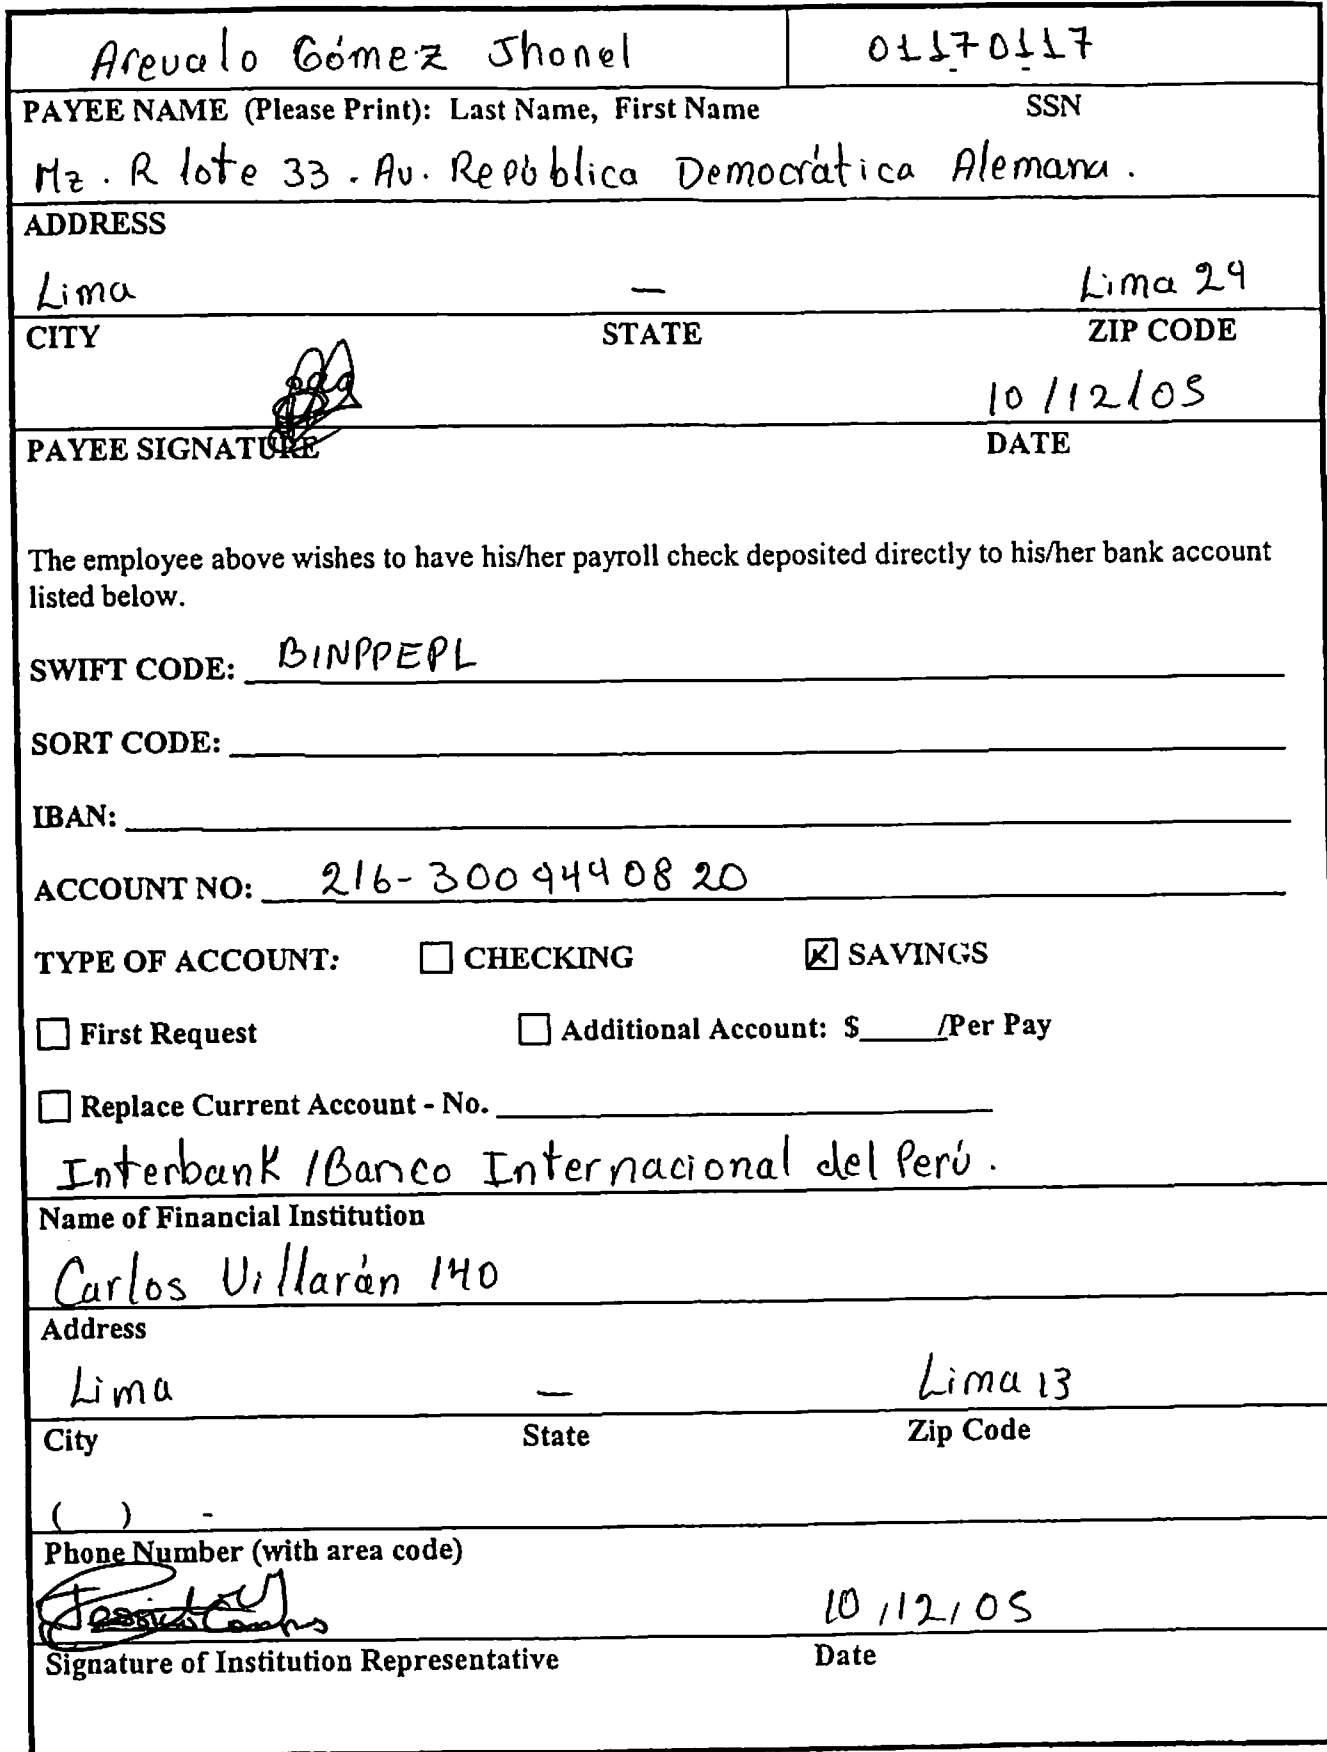 Arevalo Gómez Jhonel 01170117
PAYEE NAME (Please Print): Last Name, First Name SSN
Mz. R lote 33. Av. República Democrática Alemana.
ADDRESS
Lima — Lima 29
CITY STATE ZIP CODE
10/12/05
PAYEE SIGNATURE DATE
The employee above wishes to have his/her payroll check deposited directly to his/her bank account
listed below.
SWIFT CODE: BINPPEPL
SORT CODE:
IBAN:
ACCOUNT NO: 216-3009440820
TYPE OF ACCOUNT: CHECKING SAVINGS
First Request Additional Account: $_____/Per Pay
Replace Current Account - No.
Interbank / Banco Internacional del Perú.
Name of Financial Institution
Carlos Villarán 140
Address
Lima — Lima 13
City State Zip Code
( ) -
Phone Number (with area code)
10/12/05
Signature of Institution Representative Date